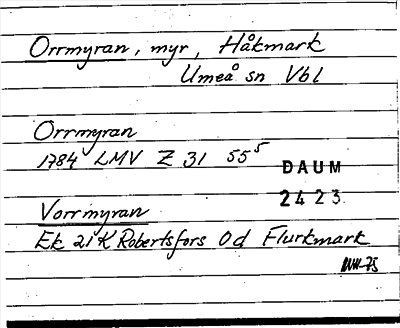 Orrmyran, myr, Håkmark
Umeå sn Vbl
Orrmyran
1784 LMV Z 31 55⁵
DAUM
2423
Vorrmyran
Ek 21K Robertsfors 0d Flurkmark